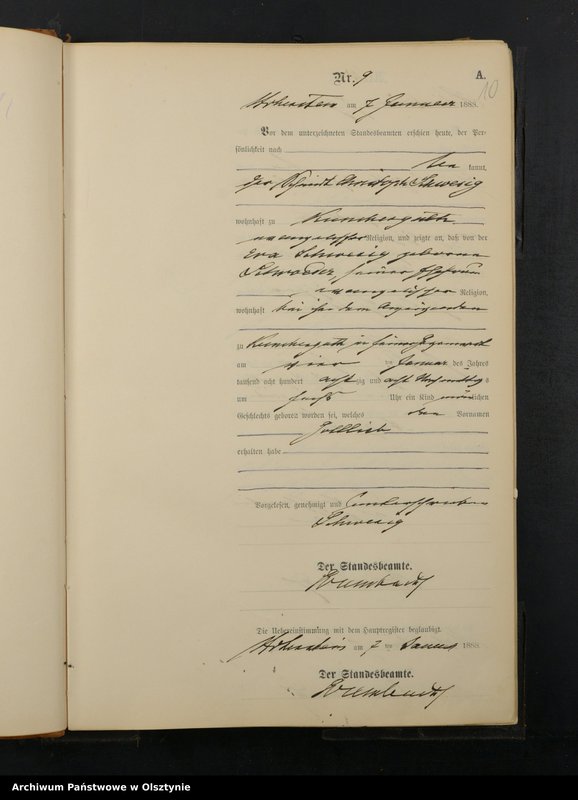 Nr. 9
A.
10
Hohenstein am 7 Januar 1888.
Vor dem unterzeichneten Standesbeamten erschien heute, der Per-
sönlichkeit nach
be kannt,
der Christoph Schwesig
wohnhaft zu
evangelischer Religion, und zeigte an, daß von der
Eva Schwesig geborene
seiner Ehefrau
evangelischer Religion,
wohnhaft bei
zu in seiner
am vier ten Januar des Jahres
tausend acht hundert acht zig und acht Nachmittags
um sechs Uhr ein Kind männlichen
Geschlechts geboren worden sei, welches den Vornamen
Gottlieb
erhalten habe
Vorgelesen, genehmigt und unterschrieben
Schwesig
Der Standesbeamte.
Die Uebereinstimmung mit dem Hauptregister beglaubigt.
Hohenstein am 7 ten Januar 1888.
Der Standesbeamte.
Archiwum Państwowe w Olsztynie